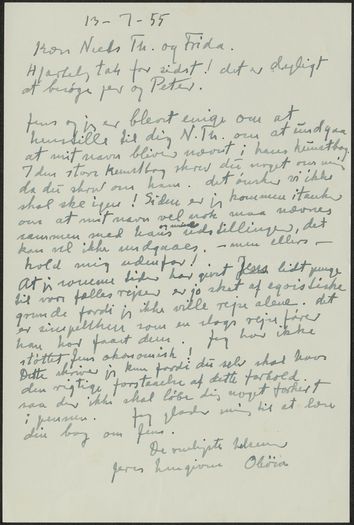 13-7-55
Kære Niels Th. og Frida.
Hjertelig tak for sidst! det er dejligt
at besøge jer og Peter.
Jens og jeg er blevet enige om at
henstille til dig N. Th. om at undgaa
at mit navn bliver nævnt i hans kunstbog
I den store kunstbog skrev du noget om mig
da du skrev om ham. det ønsker vi ikke
skal ske igen! Siden er jeg kommen i tanker
om at mit navn vel nok maa nævnes
sammen med hans udstillinger, det
kan vel ikke undgaaes. - men ellers -
hold mig udenfor!
At jeg somme tider har givet Jens lidt penge
til vor fælles rejser er jo sket af egoistiske
grunde fordi jeg ikke ville rejse alene. det
er simpelthen som en slags rejse fører
han har faaet dem. Jeg har ikke
støttet Jens økonomisk!
Dette skriver jeg kun fordi du selv skal have
den rigtige forstaaelse af dette forhold
saa der ikke skal løbe dig noget forkert
i pennen. Jeg glæder mig til at læse
din bog om Jens.
De venligste hilsener
Jeres hengivne Olivia